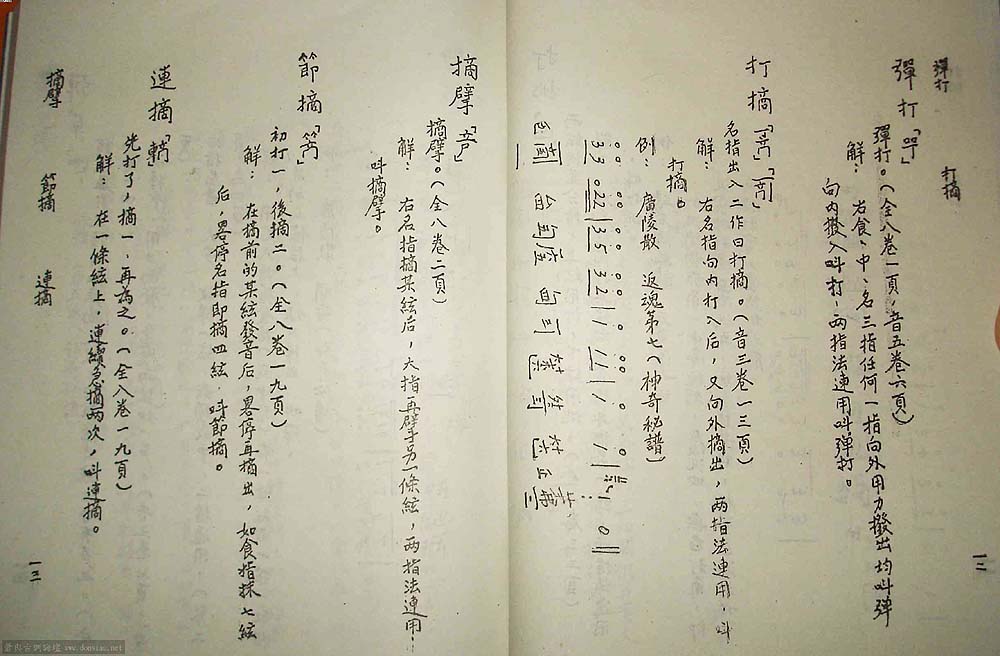 彈打
打摘
彈打「」
彈打。(全八卷一頁,音五卷六頁)
解: 右食、中、名三指任何一指向外用力撥出均叫彈
向内撥入叫打,兩指法連用叫彈打。
打摘「」「」
名指出入二作曰打摘。(音三卷一三頁)
解: 右名指向内打入后,又向外摘出,两指法連用,叫
打摘。
例: 廣陵散 返魂第七(神奇秘譜)
3 3 0 2 2 | 3 5 3 2 | 1 1 1 | 1 1 | 1 0 ||
一二
摘擘「」
摘擘。(全八卷二頁)
解: 右名指摘某絃后,大指再擘另一條絃,两指法連用,
叫摘擘。
節摘「」
初打一,後摘二。(全八卷一九頁)
解: 在摘前的某絃發音后,畧停再摘出,如食指抹七絃
后,畧停名指即摘四絃 叫節摘。
連摘「」
先打了,摘一,再為之。(全八卷一九頁)
解: 在一條絃上,連續急摘两次,叫連摘。
摘擘
節摘
連摘
一三
www.donsiau.net